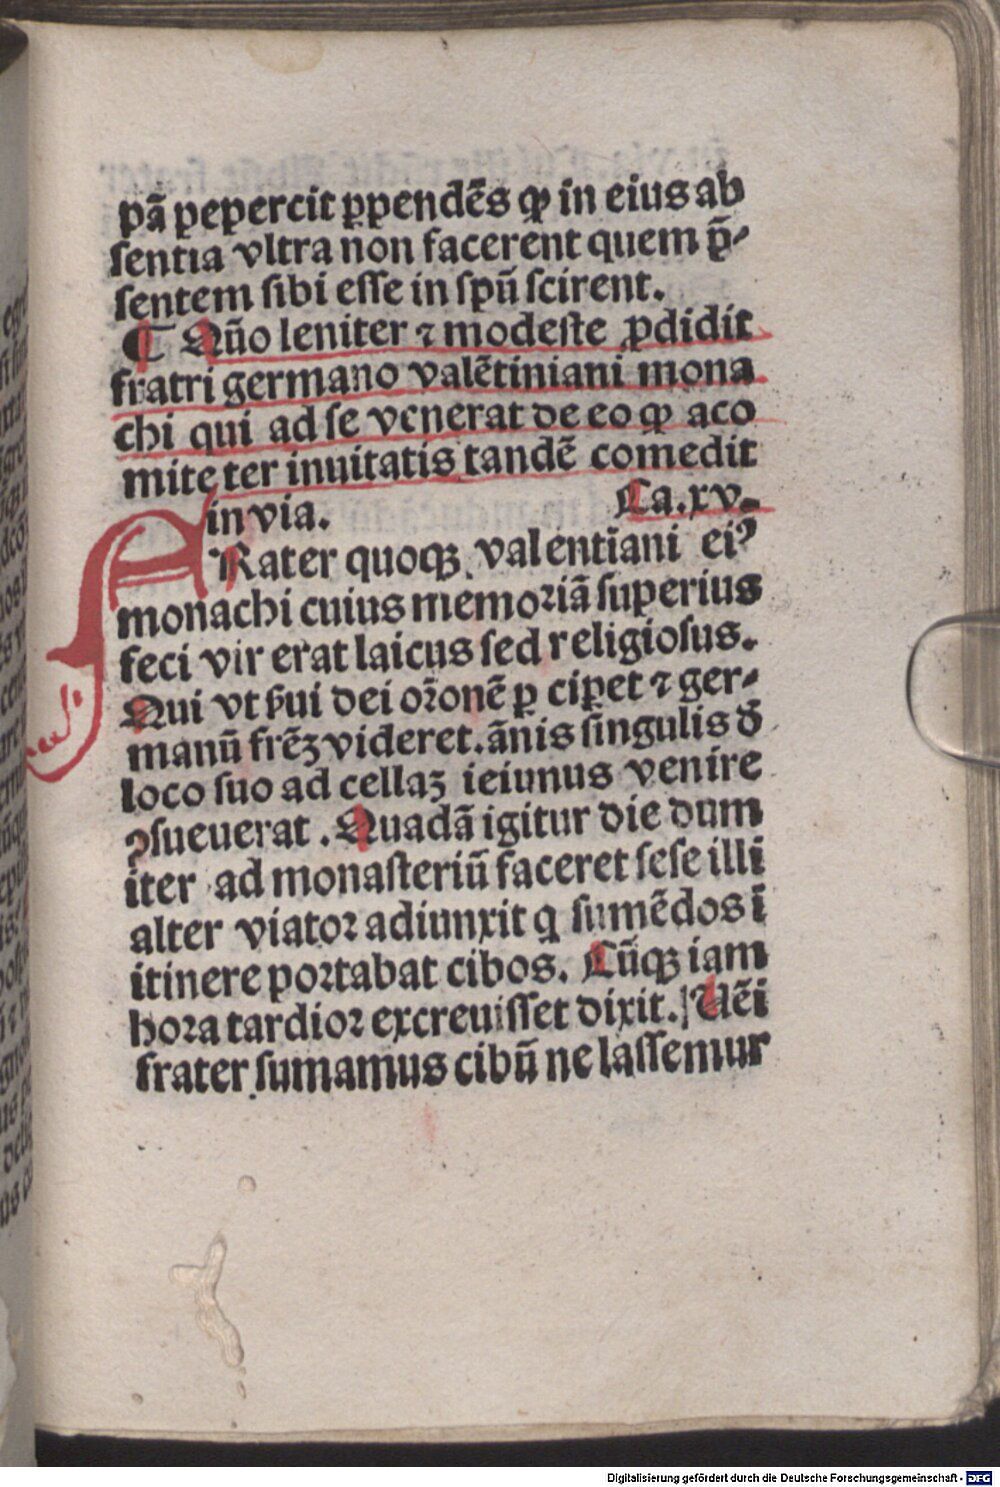 pā pepercit ꝑpendēs ꝙ in eius ab
sentia vltra non facerent quem p̄-
sentem sibi esse in spū scirent.
¶ Qūo leniter ⁊ modeste ꝓdidit
fratri germano valētiniani mona
chi qui ad se venerat de eo ꝙ aco
mite ter inuitatis tandē comedit
in via. Ca.xv.
FRater quoqꝫ valentīani eiꝰ
monachi cuius memoriā superius
feci vir erat laicus sed religiosus.
Qui vt ẜui dei or̄onē ꝑ ciꝑet ⁊ ger-
manū frēꝫ videret. ānis singulis đ
loco suo ad cellaꝫ ieiunus venire
ꝯsueuerat. Quadā igitur die dum
iter ad monasteriū faceret sese illi
alter viator adiunxit q sumēdos ī
itinere portabat cibos. Cūqꝫ iam
hora tardior excreuisset dixit. Uēi
frater sumamus cibū ne lassemur
Digitalisierung gefördert durch die Deutsche Forschungsgemeinschaft - DFG